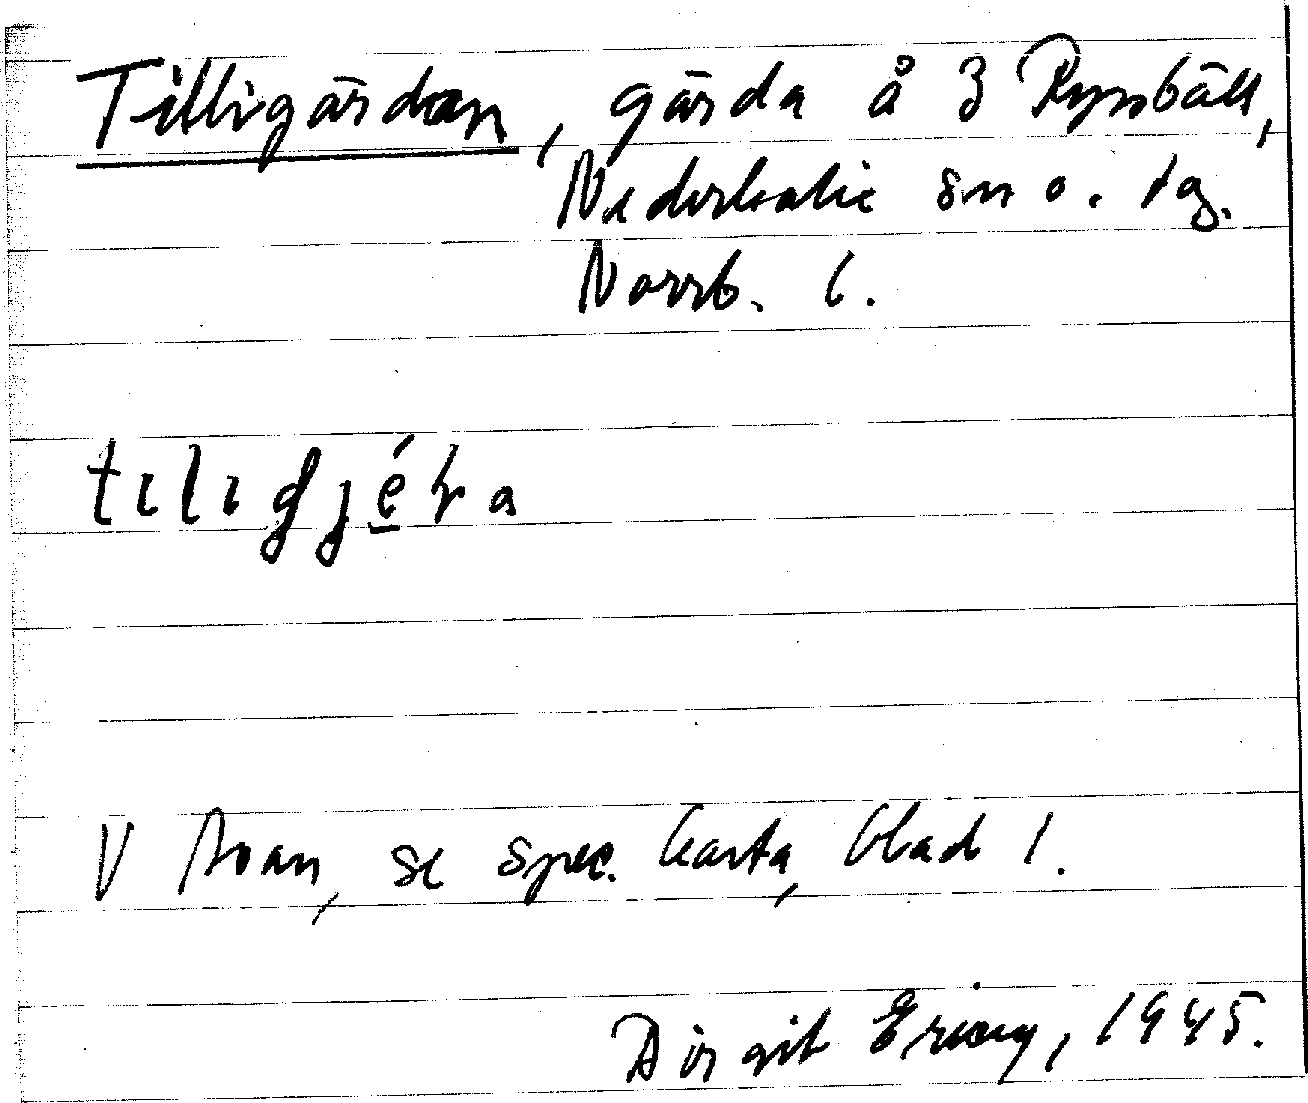 Tilligärdan, gärda å 3 Rynbäck,
Nederkalix sn o. tg.
Norrb. l.
tılıgjé̱ḷa
V Åvan, se spec. karta, blad 1.
Birgit Ericy, 1945.